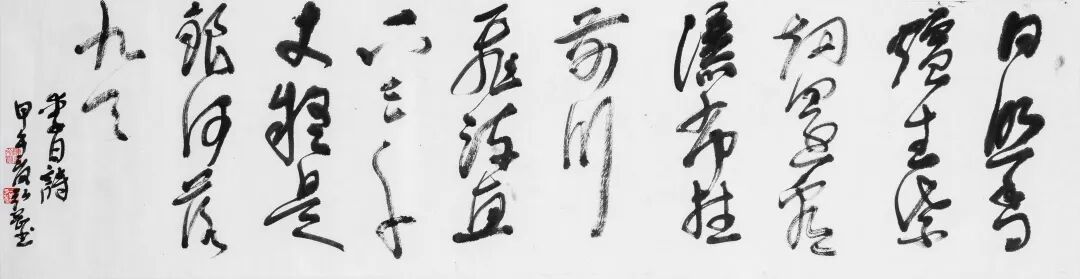 日照香
爐生紫
烟遥看
瀑布挂
前川
飛流直
下三千
尺疑是
銀河落
九天
李白詩
甲午